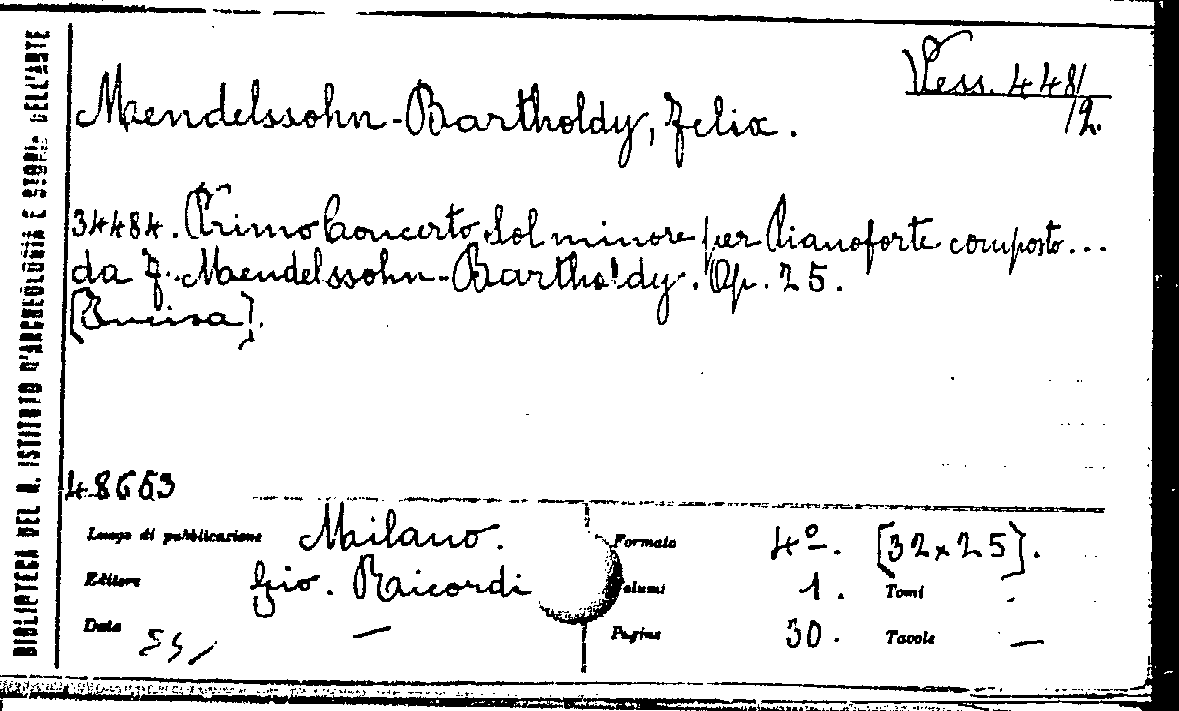 BIBLIOTECA DEL R. ISTITUTO D'ARCHEOLOGIA E STORIA DELL'ARTE
Vess. 448/2.
Mendelssohn-Bartholdy, Felix.
34484. Primo Concerto Sol minore per Pianoforte composto...
da F. Mendelssohn-Bartholdy. Op. 25.
[Incisa].
48663
Luogo di pubblicazione Milano. Formato 4º. [32x25].
Editore Gio. Ricordi Volumi 1. Tomi -
Data — Pagine 30. Tavole —